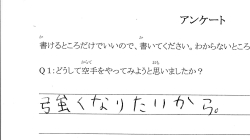 アンケート
書けるところだけでいいので、書いてください。わからないところ
Q1:どうして空手をやってみようと思いましたか?
強くなりたいから。